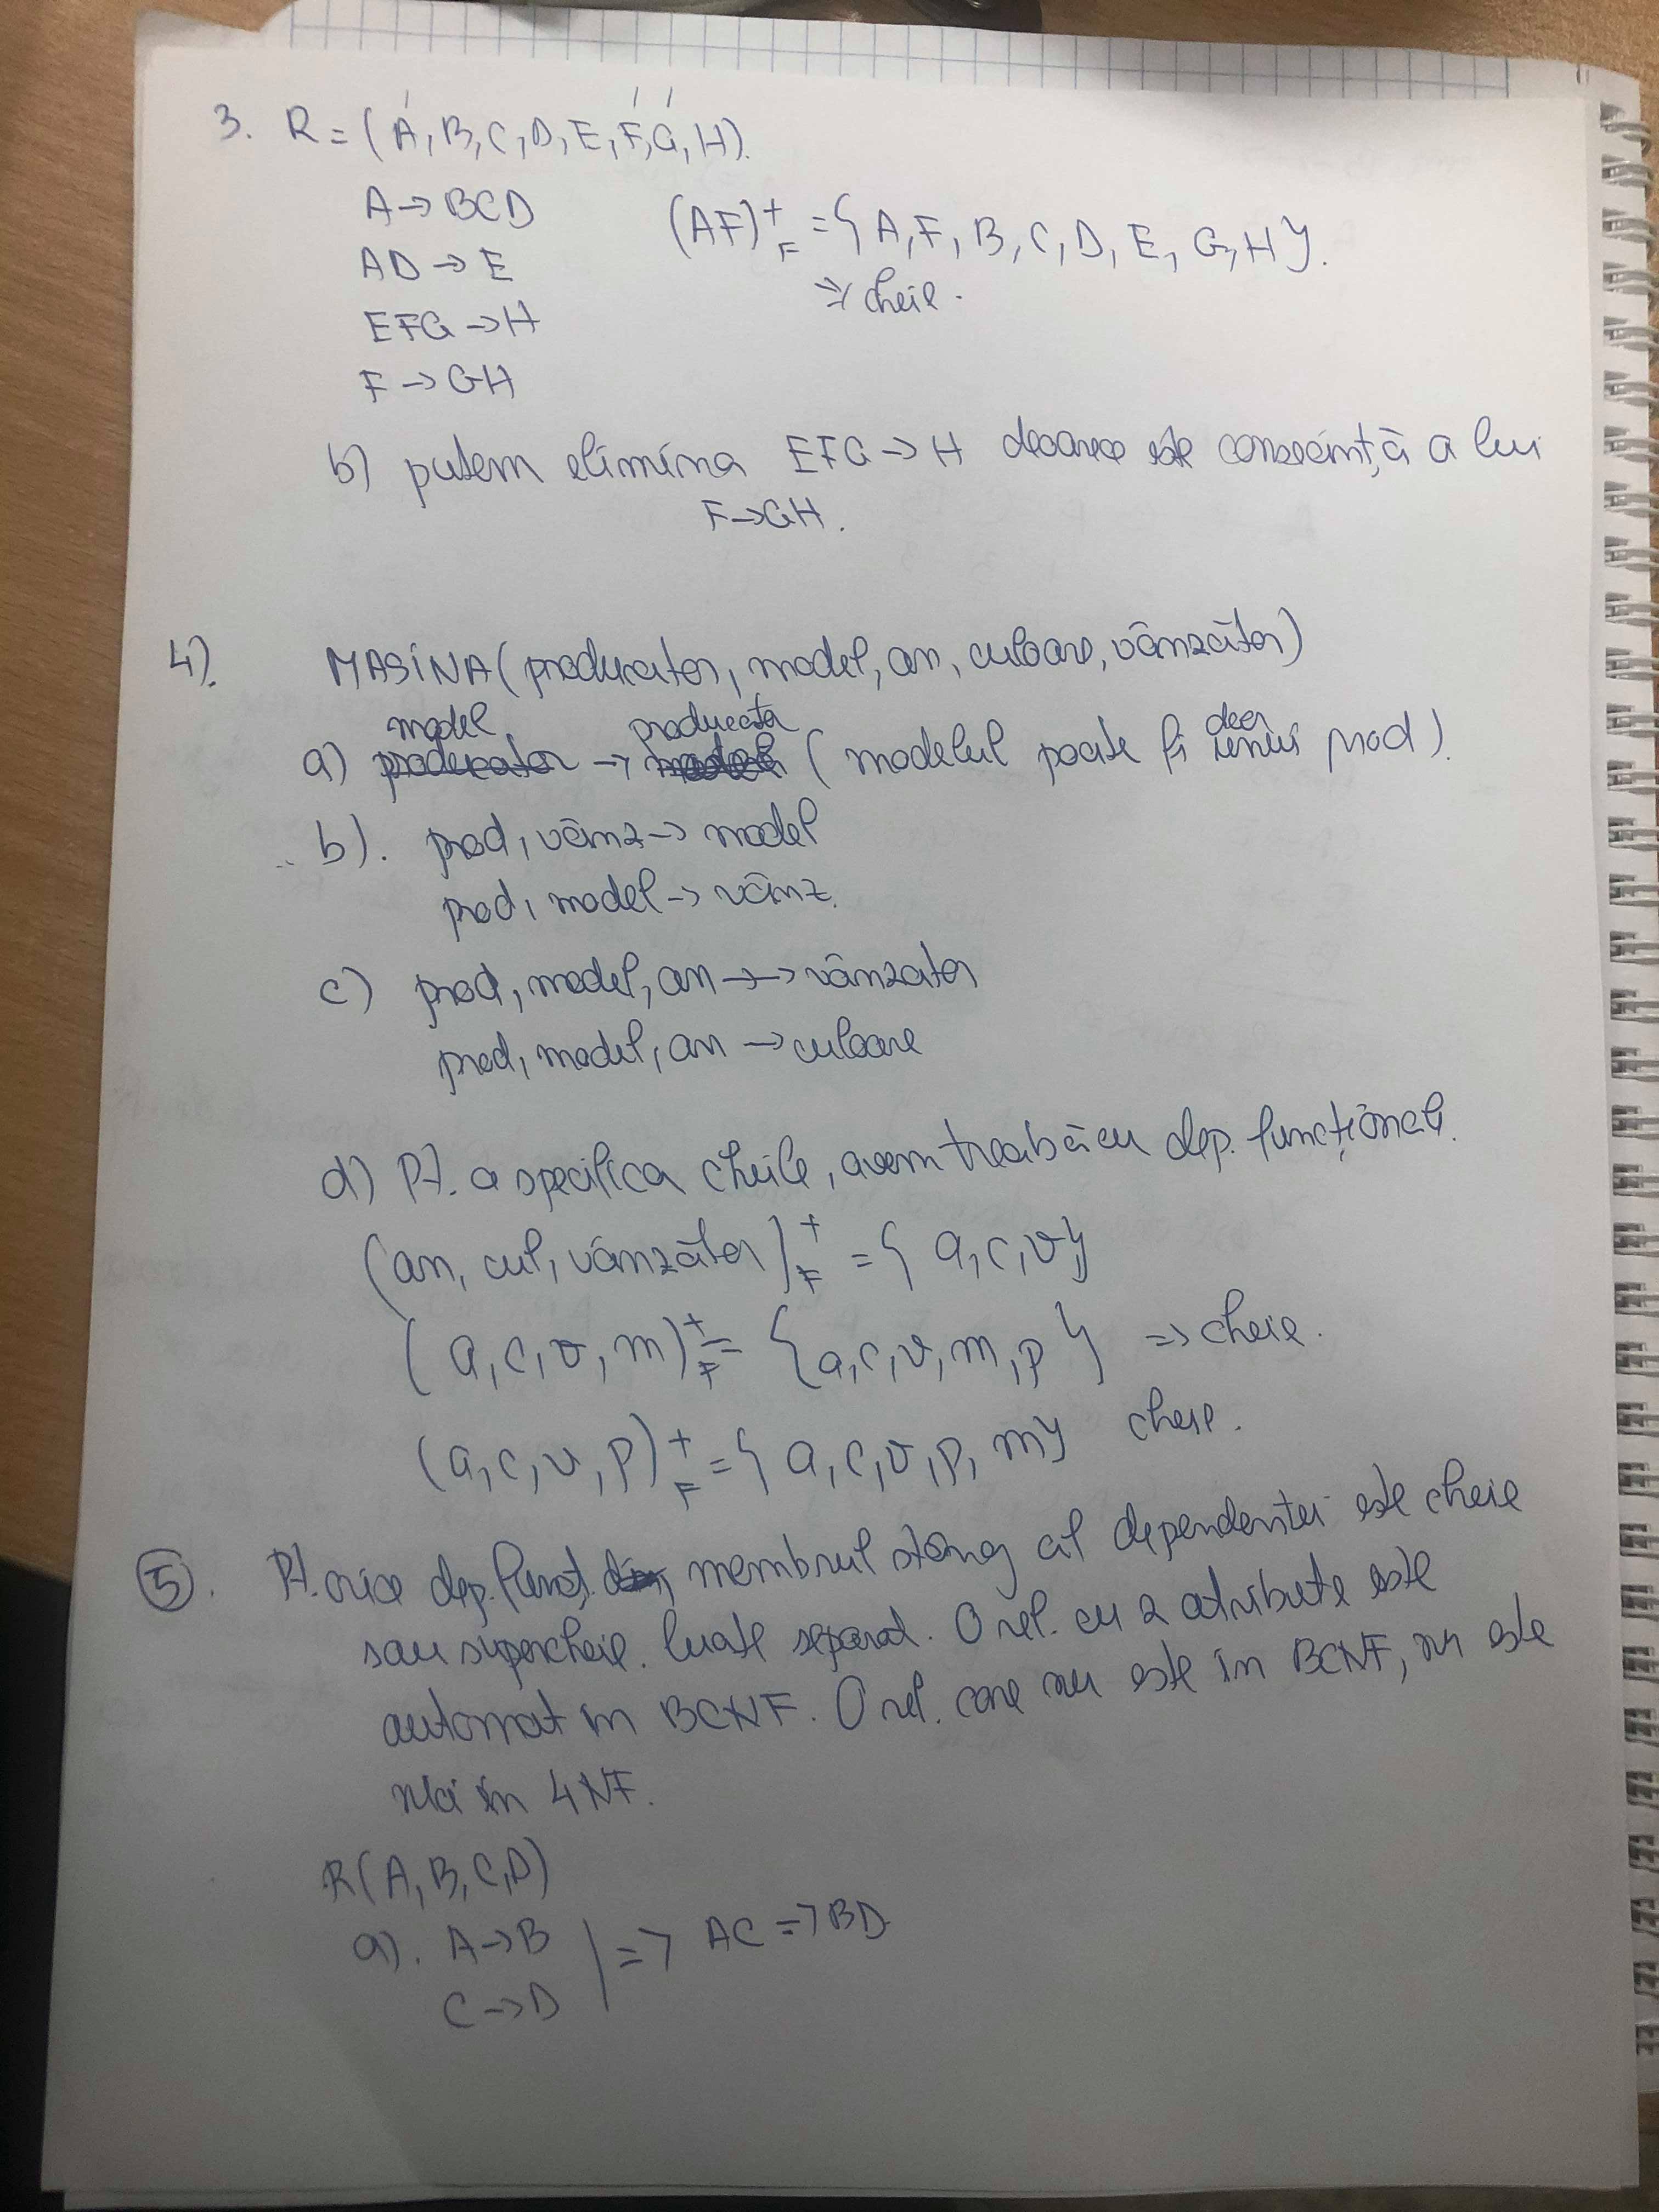 3. R = (A, B, C, D, E, F, G, H).
A → BCD
(AF)⁺F = {A, F, B, C, D, E, G, H}.
AD → E
⇒ cheie.
EFG → H
F → GH
b) putem elimina EFG → H deoarece este consecință a lui
F → GH.
4). MASINA (producator, model, an, culoare, vânzător)
model producator
a) → (modelul poate fi doar unui prod).
b). prod, vânz → model
prod, model → vânz.
c) prod, model, an →→ vânzator
prod, model, an → culoare
d) Pt. a specifica cheile, avem treabă cu dep. funcțională.
(an, cul, vânzător)⁺F = {a, c, v}
(a, c, v, m)⁺F = {a, c, v, m, p} ⇒ cheie.
(a, c, v, p)⁺F = {a, c, v, p, m} cheie.
5. Pt. orice dep. funcț. membrul stâng al dependentei este cheie
sau supercheie. luate separat. O rel. cu 2 atribute este
automat in BCNF. O rel. care nu este în BCNF, nu este
nici in 4NF.
R(A, B, C, D)
a). A → B
⇒ AC ⇒ BD.
C → D